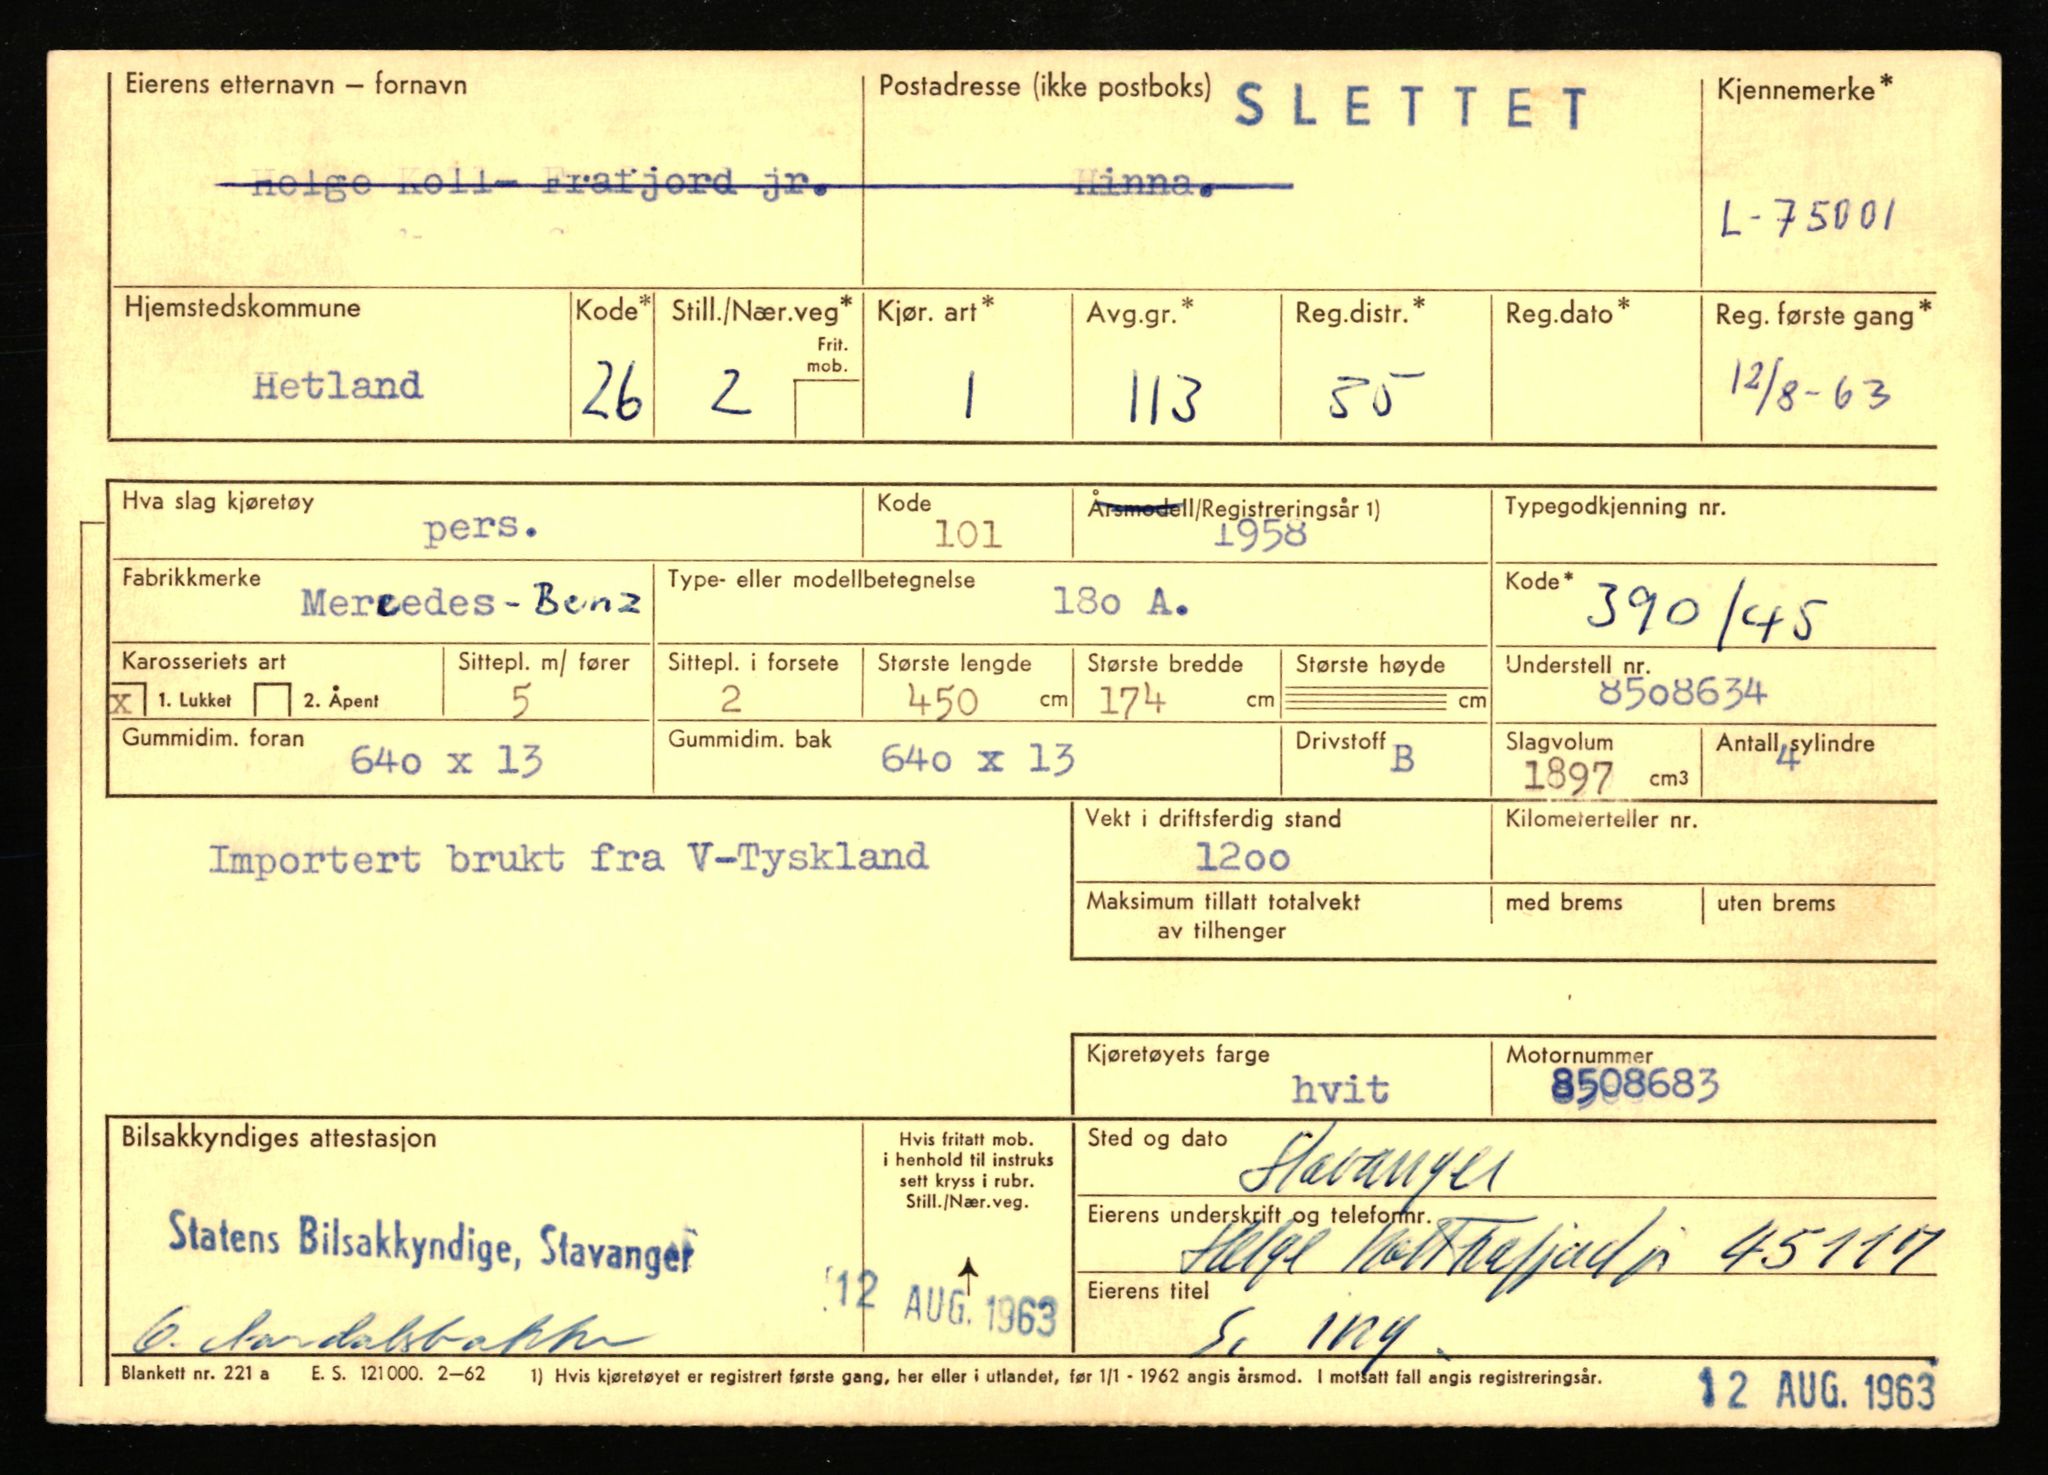 Eierens etternavn – fornavn
Postadresse (ikke postboks)
SLETTET
Kjennemerke*
Helge Koll- Frafjord jr.
Hinna.
L-75001
Hjemstedskommune
Kode*
Still./Nær.veg*
Frit. mob.
Kjør. art*
Avg.gr.*
Reg.distr.*
Reg.dato*
Reg. første gang*
Hetland
26
2
1
113
55
12/8-63
Hva slag kjøretøy
pers.
Kode
101
Årsmodell/Registreringsår 1)
1958
Typegodkjenning nr.
Fabrikkmerke
Mercedes-Benz
Type- eller modellbetegnelse
180 A.
Kode*
390/45
Karosseriets art
X 1. Lukket
2. Åpent
Sittepl. m/ fører
5
Sittepl. i forsete
2
Største lengde
450 cm
Største bredde
174 cm
Største høyde
cm
Understell nr.
8508634
Gummidim. foran
640 x 13
Gummidim. bak
640 x 13
Drivstoff
B
Slagvolum
1897 cm3
Antall sylindre
4
Importert brukt fra V-Tyskland
Vekt i driftsferdig stand
1200
Kilometerteller nr.
Maksimum tillatt totalvekt
av tilhenger
med brems
uten brems
Kjøretøyets farge
hvit
Motornummer
8508683
Bilsakkyndiges attestasjon
Hvis fritatt mob.
i henhold til instruks
sett kryss i rubr.
Still./Nær.veg.
Statens Bilsakkyndige, Stavanger
12 AUG. 1963
Sted og dato
Stavanger
Eierens underskrift og telefonnr.
Helge Frafjord jr 45117
Eierens titel
S. ing.
Blankett nr. 221 a E. S. 121000. 2–62
1) Hvis kjøretøyet er registrert første gang, her eller i utlandet, før 1/1 - 1962 angis årsmod. I motsatt fall angis registreringsår.
12 AUG. 1963